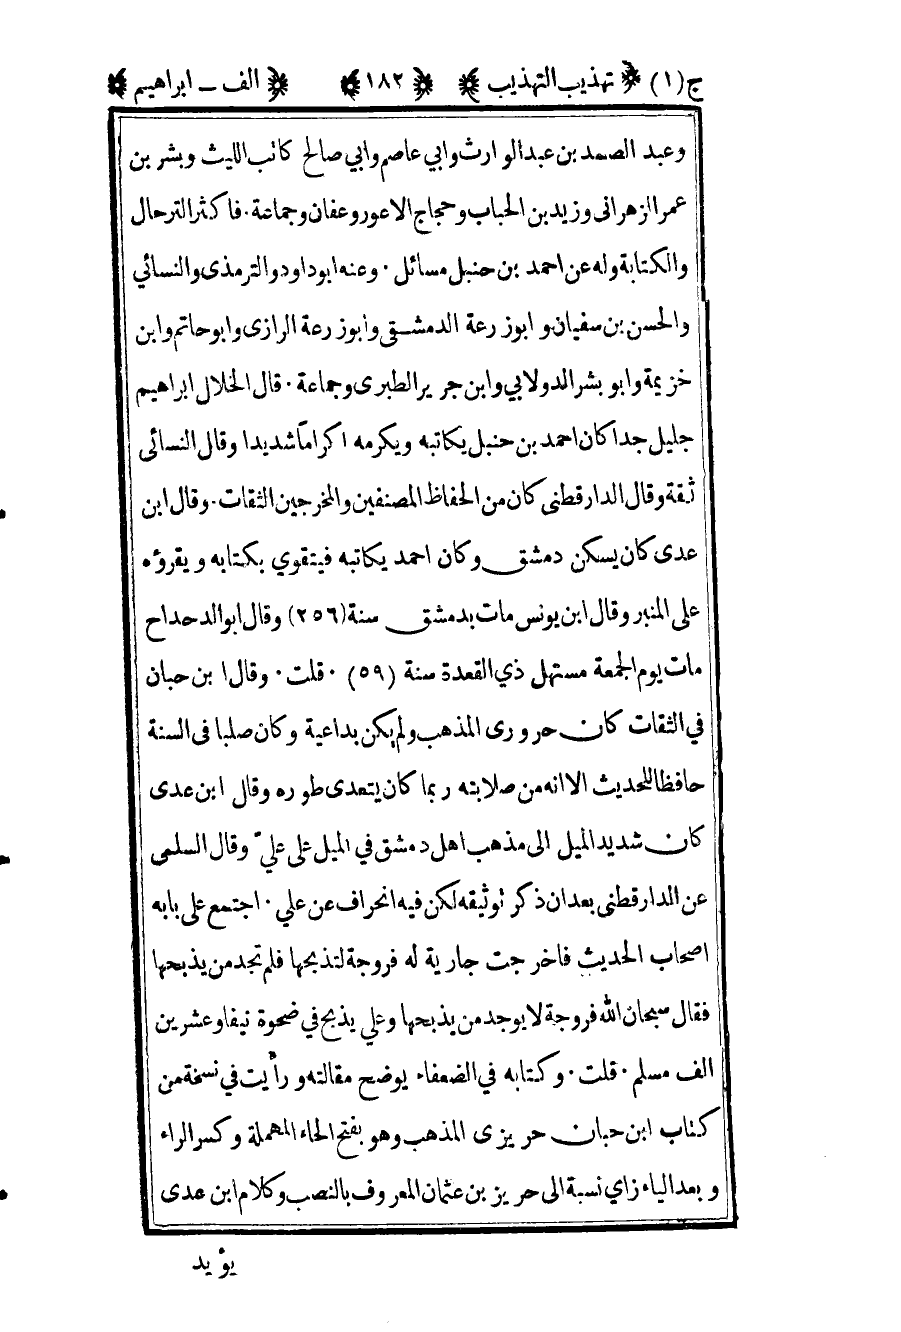 ج(١) ﴿ تهذيب التهذيب ﴾ ﴿ ١٨٢ ﴾ ﴿ الف ــ ابراهيم ﴾
وعبد الصمد بن عبد الوارث وابي عاصم وابي صالح كاتب الليث وبشر بن
عمر الزهرانى وزيد بن الحباب وحجاج الاعور وعفان وجماعة ٠ فاكثر الترحال
والكتابة وله عن احمد بن حنبل مسائل ٠ وعنه ابوداود والترمذى والنسائي
والحسن بن سفيان و ابوزرعة الدمشقى وابوزرعة الرازى وابوحاتم وابن
خزيمة وابو بشر الدولابي وابن جرير الطبرى وجماعة ٠ قال الخلال ابراهيم
جليل جدا كان احمد بن حنبل يكاتبه ويكرمه اكراماً شديدا وقال النسائى
ثقة وقال الدارقطنى كان من الحفاظ المصنفين والمخرجين الثقات ٠ وقال ابن
عدى كان يسكن دمشق وكان احمد يكاتبه فيتقوي بكتابه ويقرؤه
على المنبر وقال ابن يونس مات بدمشق سنة (٢٥٦) وقال ابوالدحداح
مات يوم الجمعة مستهل ذي القعدة سنة (٥٩) ٠ قلت ٠ وقال ابن حبان
في الثقات كان حرورى المذهب ولم يكن بداعية وكان صلبا فى السنة
حافظا للحديث الا انه من صلابته ربما كان يتعدى طوره وقال ابن عدى
كان شديد الميل الى مذهب اهل دمشق في الميل على علي ّ وقال السلمى
عن الدارقطنى بعدان ذكر توثيقه لكن فيه انحراف عن علي ٠ اجتمع على بابه
اصحاب الحديث فاخرجت جارية له فروجة لتذبحها فلم تجد من يذبحها
فقال سبحان الله فروجة لا يوجد من يذبحها وعلي يذبح في ضحوة نيفا وعشرين
الف مسلم ٠ قلت ٠ وكتابه في الضعفاء يوضح مقالته ورأيت في نسخة من
كتاب ابن حبان حريزى المذهب وهو بفتح الحاء المهملة وكسر الراء
وبعد الياء زاي نسبة الى حريز بن عثمان المعروف بالنصب وكلام ابن عدى
يؤيد